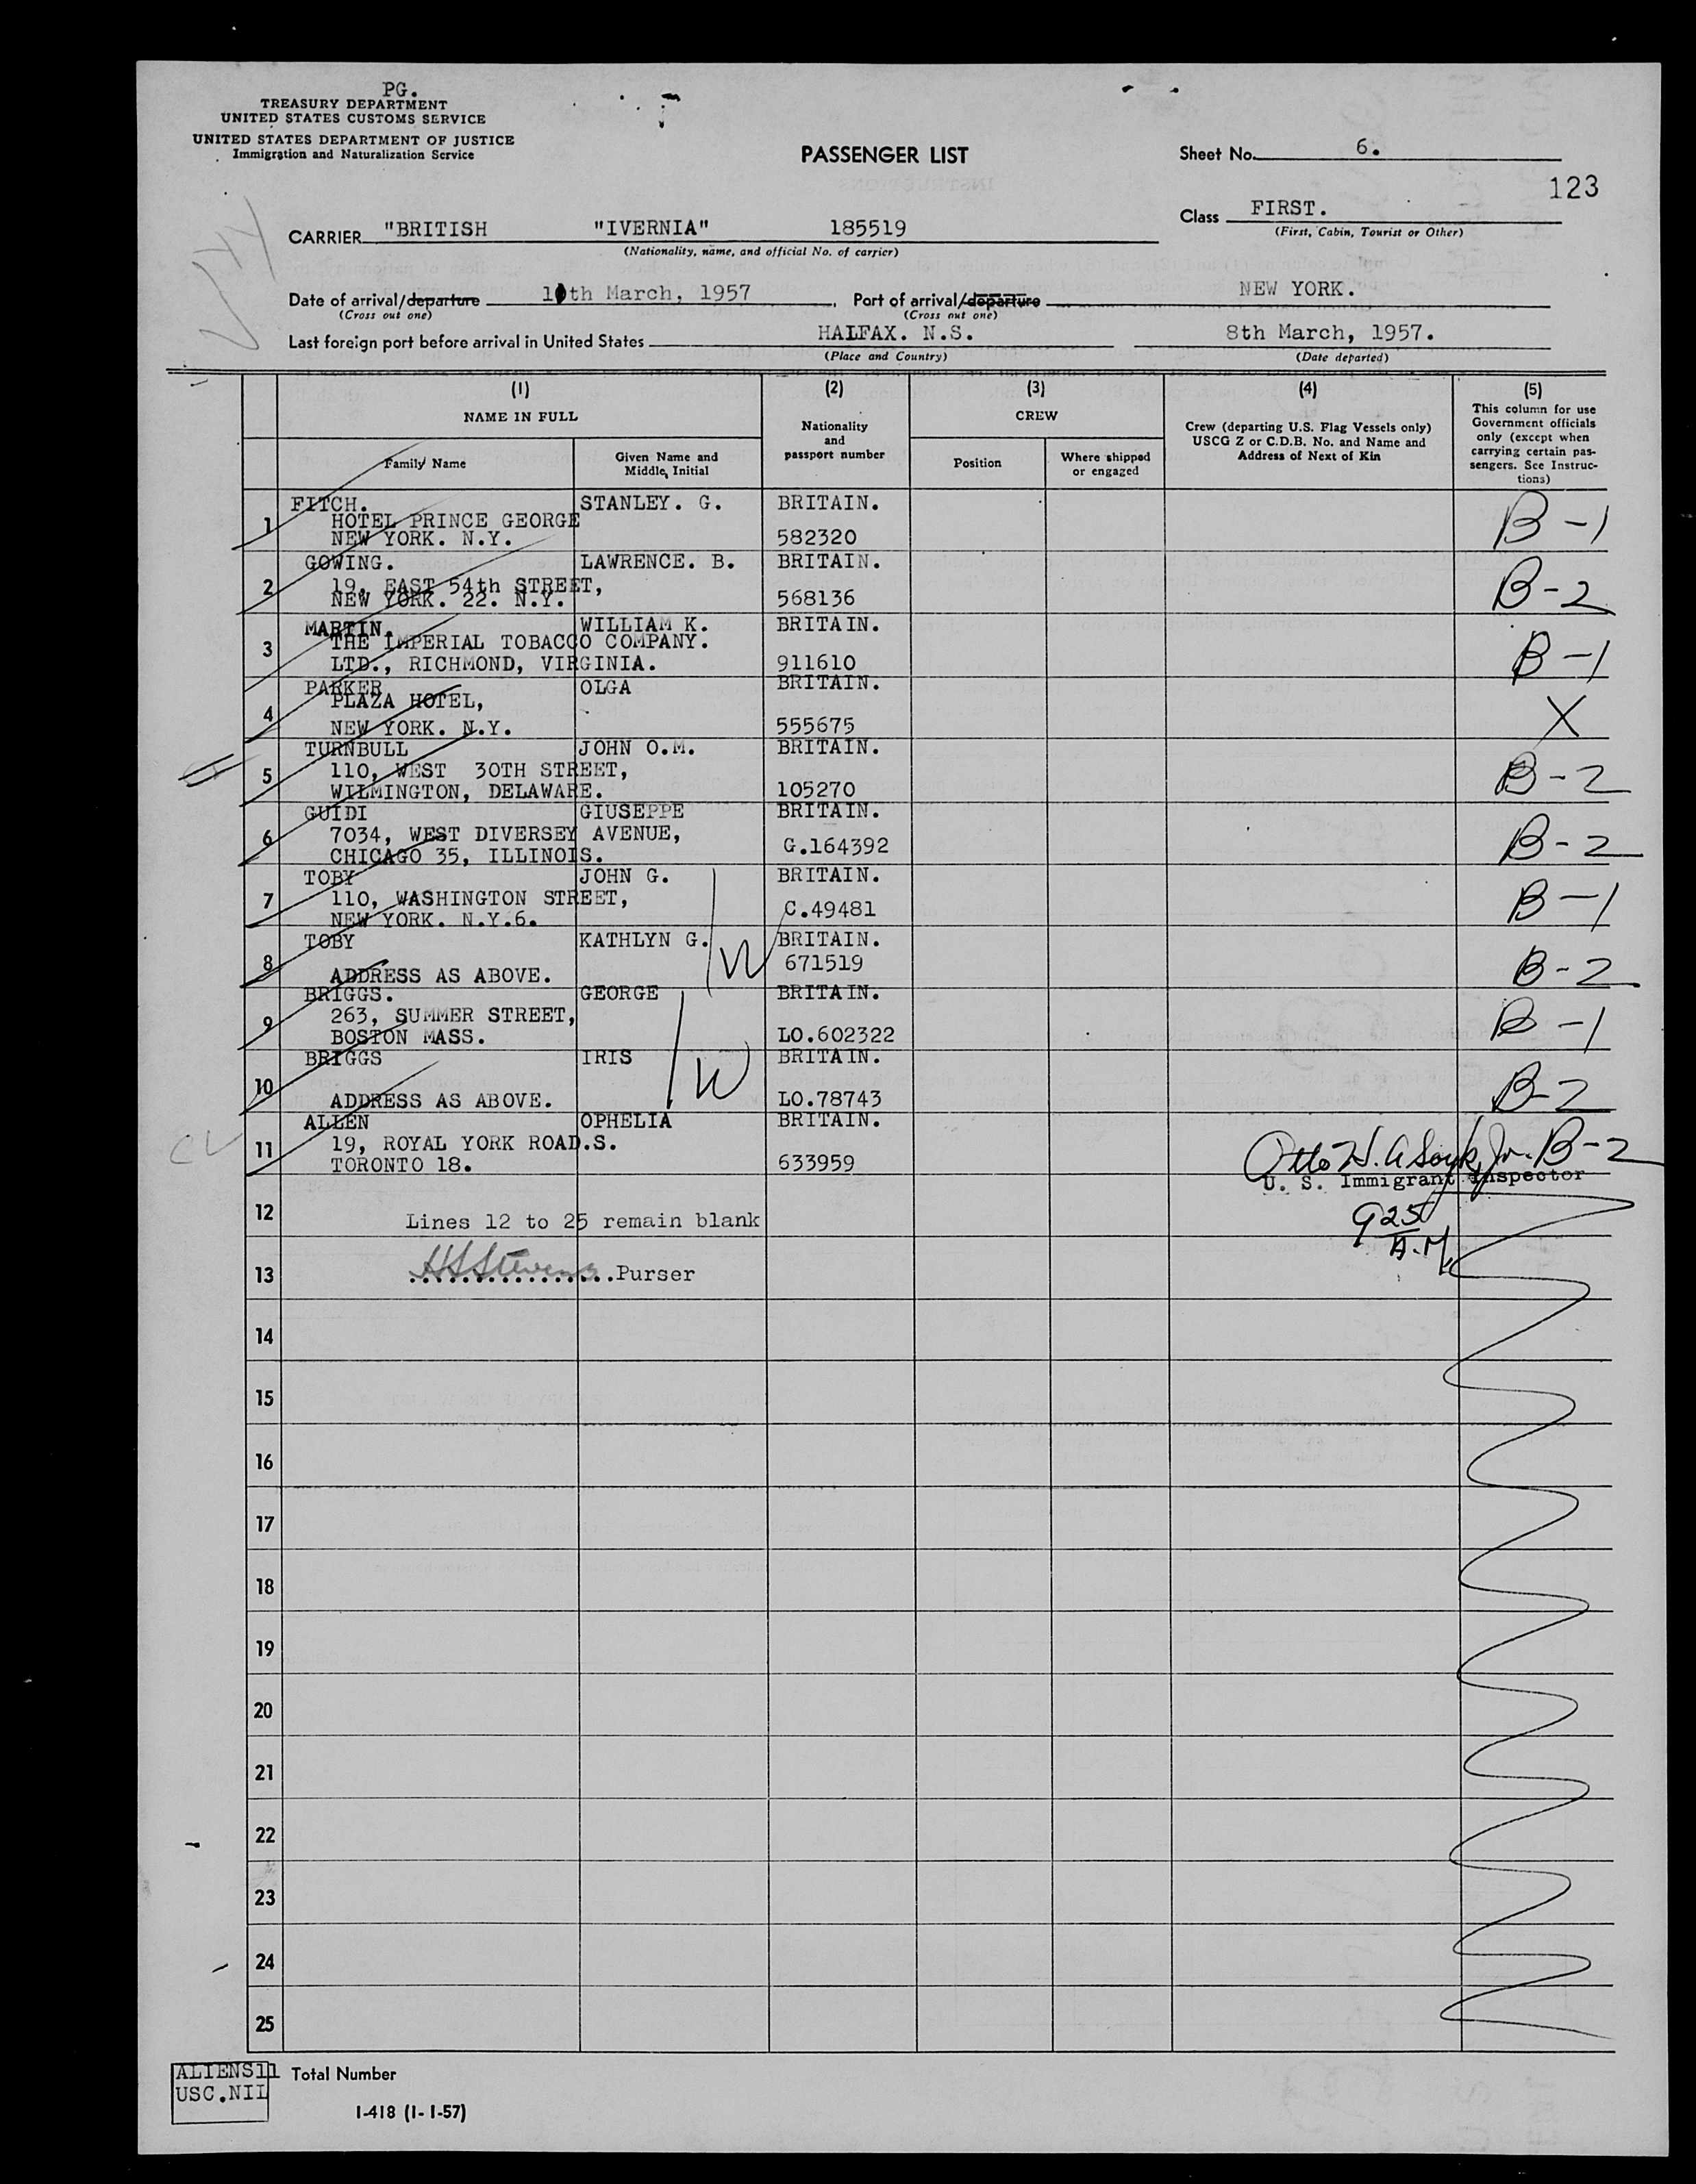 PG.
TREASURY DEPARTMENT
UNITED STATES CUSTOMS SERVICE
UNITED STATES DEPARTMENT OF JUSTICE
Immigration and Naturalization Service
PASSENGER LIST
Sheet No. 6.
123
Class FIRST.
(First, Cabin, Tourist or Other)
CARRIER "BRITISH "IVERNIA" 185519
(Nationality, name, and official No. of carrier)
Date of arrival/departure 10th March, 1957. Port of arrival/departure NEW YORK.
(Cross out one) (Cross out one)
Last foreign port before arrival in United States HALFAX. N.S. 8th March, 1957.
(Place and Country) (Date departed)
(1) (2) (3) (4) (5)
NAME IN FULL
Family Name
Given Name and Middle Initial
Nationality and passport number
CREW
Position
Where shipped or engaged
Crew (departing U.S. Flag Vessels only)
USCG Z or C.D.B. No. and Name and
Address of Next of Kin
This column for use
Government officials
only (except when
carrying certain pas-
sengers. See Instruc-
tions)
1 FITCH. STANLEY. G. BRITAIN.
HOTEL PRINCE GEORGE
NEW YORK. N.Y. 582320 B-1
2 GOWING. LAWRENCE. B. BRITAIN.
19, EAST 54th STREET,
NEW YORK. 22. N.Y. 568136 B-2
3 MARTIN. WILLIAM K. BRITAIN.
THE IMPERIAL TOBACCO COMPANY.
LTD., RICHMOND, VIRGINIA. 911610 B-1
4 PARKER OLGA BRITAIN.
PLAZA HOTEL,
NEW YORK. N.Y. 555675 X
5 TURNBULL JOHN O.M. BRITAIN.
110, WEST 30TH STREET,
WILMINGTON, DELAWARE. 105270 B-2
6 GUIDI GIUSEPPE BRITAIN.
7034, WEST DIVERSEY AVENUE,
CHICAGO 35, ILLINOIS. G.164392 B-2
7 TOBY JOHN G. BRITAIN.
110, WASHINGTON STREET,
NEW YORK. N.Y.6. C.49481 B-1
8 TOBY KATHLYN G. W BRITAIN.
671519
ADDRESS AS ABOVE. B-2
9 BRIGGS. GEORGE BRITAIN.
263, SUMMER STREET,
BOSTON MASS. LO.602322 B-1
10 BRIGGS IRIS W BRITAIN.
ADDRESS AS ABOVE. LO.78743 B-2
11 ALLEN OPHELIA BRITAIN.
19, ROYAL YORK ROAD.S.
TORONTO 18. 633959 B-2
U. S. Immigrant Inspector
925
A.M.
12 Lines 12 to 25 remain blank
13 HSStevens Purser
14
15
16
17
18
19
20
21
22
23
24
25
ALIENS11
USC.NIL
Total Number
I-418 (1-1-57)